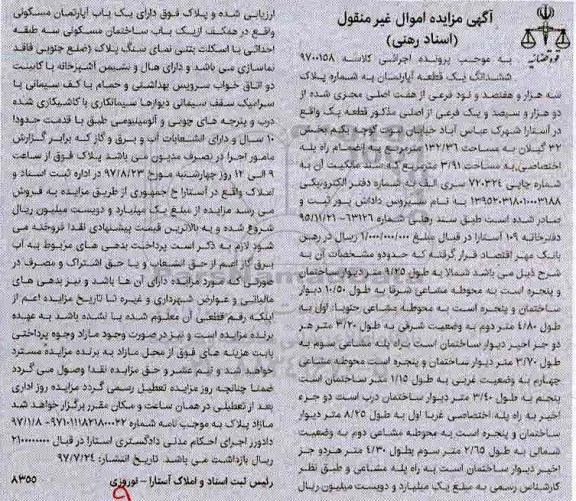 آگهی مزایده اموال غیر منقول
(اسناد رهنی)
قوه قضائیه
به موجب پرونده اجرائی کلاسه ۹۷۰۰۱۵۸
ششدانگ یک قطعه آپارتمان به شماره پلاک
سه هزار و هفتصد و نود فرعی از هفت اصلی مجزی شده از
دو هزار و سیصد و یک فرعی از اصلی مذکور قطعه یک واقع
در آستارا شهرک عباس آباد خیابان کوچه یکم بخش
۳۲ گیلان به مساحت ۱۳۲/۳۶ مترمربع به انضمام راه پله
اختصاصی به مساحت ۳/۹۱ مترمربع که سند مالکیت آن به
شماره چاپی ۷۲۰۳۲۴ سری الف به شماره دفتر الکترونیکی
۱۳۹۵۲۰۳۱۸۰۱۰۰۰۳۱۸۸ به نام سیروس داداش پور ثبت و
صادر شده است طبق سند رهنی شماره ۶۳۱۲۶-۹۵/۱۱/۲۱
دفترخانه ۱۰۹ آستارا در قبال مبلغ ۱/۰۰۰/۰۰۰/۰۰۰ ریال در رهن
بانک مهر اقتصاد قرار گرفته که حدود و مشخصات آن به
شرح ذیل می باشد شمالا به طول ۹/۲۵ متر دیوار ساختمان
و پنجره است به محوطه مشاعی شرقا به طول ۱۰/۵۰ دیوار
ساختمان و پنجره است به محوطه مشاعی جنوبا: اول به
طول ۴/۸۰ متر دوم به وضعیت شرقی به طول ۳/۲۰ متر هر
دو جزء اخیر دیوار ساختمان است براه پله مشاعی سوم به
طول ۳/۷۰ متر دیوار ساختمان و پنجره است محوطه مشاعی
چهارم به وضعیت غربی به طول ۱/۱۵ متر دیوار ساختمان است
پنجم به طول ۳/۴۰ متر دیوار ساختمان درب است دو جزء
اخیر به راه پله اختصاصی غربا اول به طول ۸/۲۵ متر دیوار
ساختمان و پنجره است به محوطه مشاعی دوم به وضعیت
شمالی به طول ۲/۶۵ متر سوم بطول ۴/۳۰ متر هر دو جزء
اخیر دیوار ساختمان است به راه پله مشاعی و طبق نظر
کارشناس رسمی به مبلغ یک میلیارد و دویست میلیون ریال
ارزیابی شده و پلاک فوق دارای یک باب آپارتمان مسکونی
واقع در همکف از یک باب ساختمان مسکونی سه طبقه
احداثی با اسکلت بتنی نمای سنگ پلاک (ضلع جنوبی فاقد
نماسازی می باشد و دارای هال و نشیمن آشپزخانه با کابینت
دو اتاق خواب سرویس بهداشتی و حمام با کف سیمانی یا
سرامیک سقف سیمانی دیوارها سیمانکاری یا کاشیکاری شده
درب و پنجره های چوبی و آلومینیومی طبق با قدمت حدودا
۱۰ سال و دارای انشعابات آب و برق و گاز که برابر گزارش
مامور اجرا در تصرف مدیون می باشد پلاک فوق از ساعت
۹ الی ۱۲ روز چهارشنبه مورخ ۹۷/۸/۲۳ در اداره ثبت اسناد و
املاک واقع در آستارا خ جمهوری از طریق مزایده به فروش
می رسد مزایده از مبلغ یک میلیارد و دویست میلیون ریال
شروع شده و به بالاترین قیمت پیشنهادی نقدا فروخته می
شود لازم به ذکر است پرداخت بدهی های مربوط به آب
برق گاز اعم از حق انشعاب و یا حق اشتراک و مصرف در
صورتی که مورد مزایده دارای آن ها باشد و نیز بدهی های
مالیاتی و عوارض شهرداری و غیره تا تاریخ مزایده اعم از
اینکه رقم قطعی آن معلوم شده یا نشده باشد به عهده
برنده مزایده است و نیز در صورت وجود مازاد وجوه پرداختی
بابت هزینه های فوق از محل مازاد به برنده مزایده مسترد
خواهد شد و نیم عشر و حق مزایده نقدا وصول می گردد
ضمنا چنانچه روز مزایده تعطیل رسمی گردد مزایده روز اداری
بعد از تعطیلی در همان ساعت و مکان مقرر برگزار خواهد شد
مازاد پلاک به موجب نامه شماره ۹۷۱۰۱۱۱۸۲۱۸۰۰۰۳۲-۹۷/۱/۸
دادورز اجرای احکام مدنی دادگستری آستارا در قبال ۲۱۰۰۰۰۰۰۰
ریال بازداشت می باشد. تاریخ انتشار: ۹۷/۷/۲۴
رئیس ثبت اسناد و املاک آستارا - نوروزی
۸۳۵۵
۹